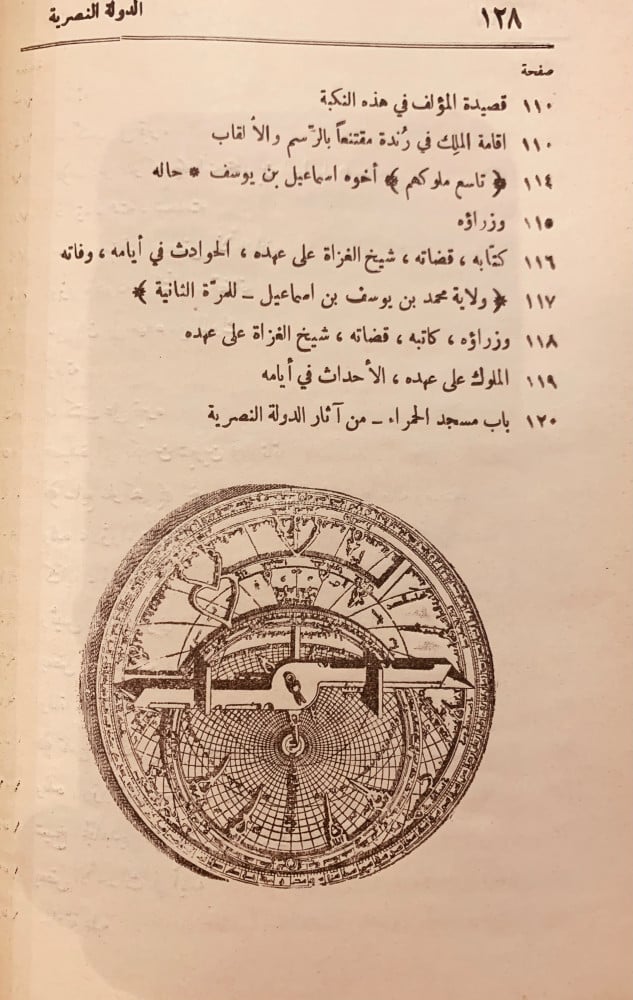 ١٢٨ الدولة النصرية
صفحة
١١٠ قصيدة المؤلف في هذه النكبة
١١٠ اقامة الملِك في رُندة مقتنعاً بالرّسم والألقاب
١١٤ ﴿ تاسع ملوكهم ﴾ أخوه اسماعيل بن يوسف * حاله
١١٥ وزراؤه
١١٦ كتّابه ، قضاته ، شيخ الغزاة على عهده ، الحوادث في أيامه ، وفاته
١١٧ ﴿ ولاية محمد بن يوسف بن اسماعيل ـ للمرّة الثانية ﴾
١١٨ وزراؤه ، كاتبه ، قضاته ، شيخ الغزاة على عهده
١١٩ الملوك على عهده ، الأحداث في أيامه
١٢٠ باب مسجد الحمراء ـ من آثار الدولة النصرية